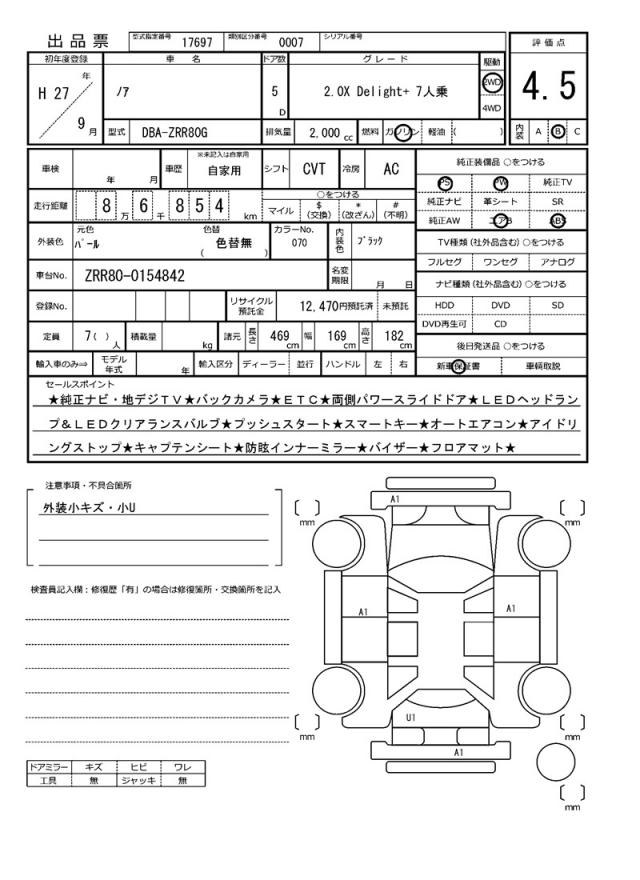 出品票 型式指定番号 17697 類別区分番号 0007 シリアル番号
初年度登録 車 名 ドア数 グレード 駆動 評価点
H 27 年 9 月 ﾉｱ 5 D 2.0X Delight+ 7人乗 2WD 4WD 4.5
型式 DBA-ZRR80G 排気量 2,000 cc 燃料 ガソリン 軽油 ( ) 内装 A B C
車検 年 月 車歴 ※未記入は自家用 自家用 シフト CVT 冷房 AC 純正装備品 ○をつける
PS PW 純正TV
走行距離 8 万 6 千 8 5 4 km ○をつける 純正ナビ 革シート SR
マイル $ (交換) * (改ざん) # (不明) 純正AW エアB ABS
外装色 元色 ﾊﾟｰﾙ 色替 色替無 ( ) カラーNo. 070 内装色 ﾌﾞﾗｯｸ TV種類 (社外品含む) ○をつける
フルセグ ワンセグ アナログ
車台No. ZRR80-0154842 名変期限 月 日 ナビ種類 (社外品含む) ○をつける
登録No. リサイクル預託金 12,470円預託済 未預託 HDD DVD SD
DVD再生可 CD
定員 7( ) 人 積載量 kg 諸元 長さ 469 cm 幅 169 cm 高さ 182 cm 後日発送品 ○をつける
輸入車のみ⇒ モデル年式 年 輸入区分 ディーラー 並行 ハンドル 左 右 新車保証書 車輌取説
セールスポイント
★純正ナビ・地デジTV★バックカメラ★ETC★両側パワースライドドア★LEDヘッドラン
プ&LEDクリアランスバルブ★プッシュスタート★スマートキー★オートエアコン★アイドリ
ングストップ★キャプテンシート★防眩インナーミラー★バイザー★フロアマット★
注意事項・不具合箇所
外装小キズ・小U
検査員記入欄：修復歴「有」の場合は修復箇所・交換箇所を記入
A1
mm mm
A1 A1
U1
A1
mm mm
mm
ドアミラー キズ ヒビ ワレ
工具 無 ジャッキ 無